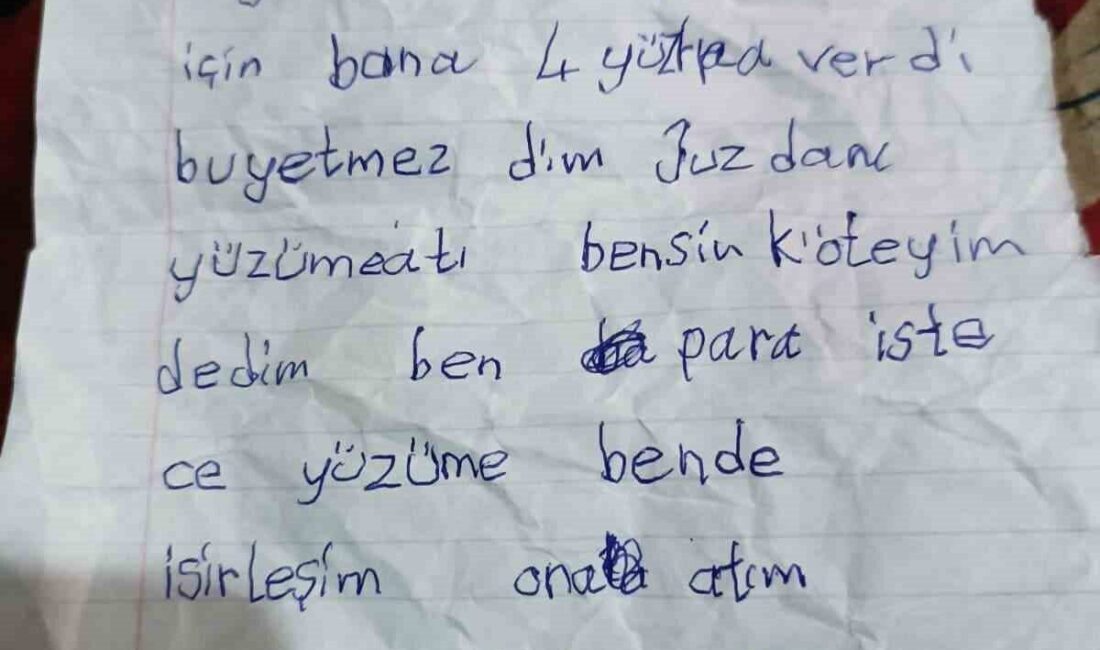 için bana 4 yüz verdi
buyetmez dim
yüzümeatı bensin
dedim ben para iste
ce yüzüme bende
isirleşim ona atım